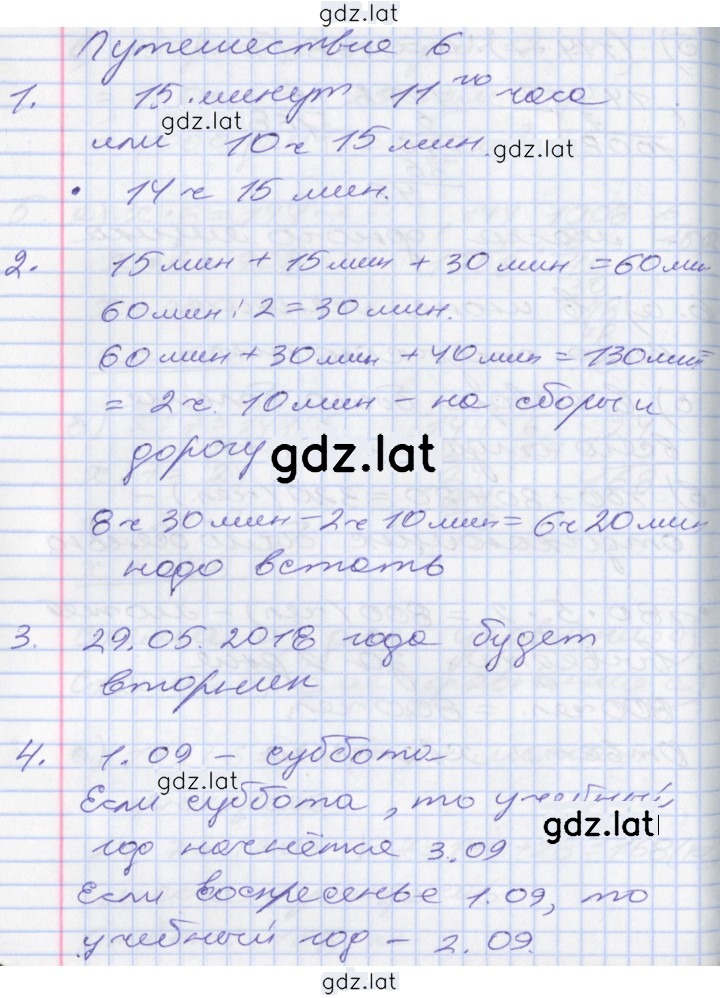 gdz.lat
Путешествие 6
1. 15 минут 11го часа
gdz.lat
или 10 ч 15 мин.
gdz.lat
• 14 ч 15 мин.
2. 15 мин + 15 мин + 30 мин = 60 мин
60 мин : 2 = 30 мин.
60 мин + 30 мин + 40 мин = 130 мин =
= 2 ч. 10 мин – на сборы и
дорогу
gdz.lat
8 ч 30 мин – 2 ч 10 мин = 6 ч 20 мин
надо встать
3. 29.05.2018 года будет
вторник
4. 1.09 – суббота
gdz.lat
Если суббота, то учебный
gdz.lat
год начнётся 3.09
Если воскресенье 1.09, то
учебный год – 2.09.
gdz.lat